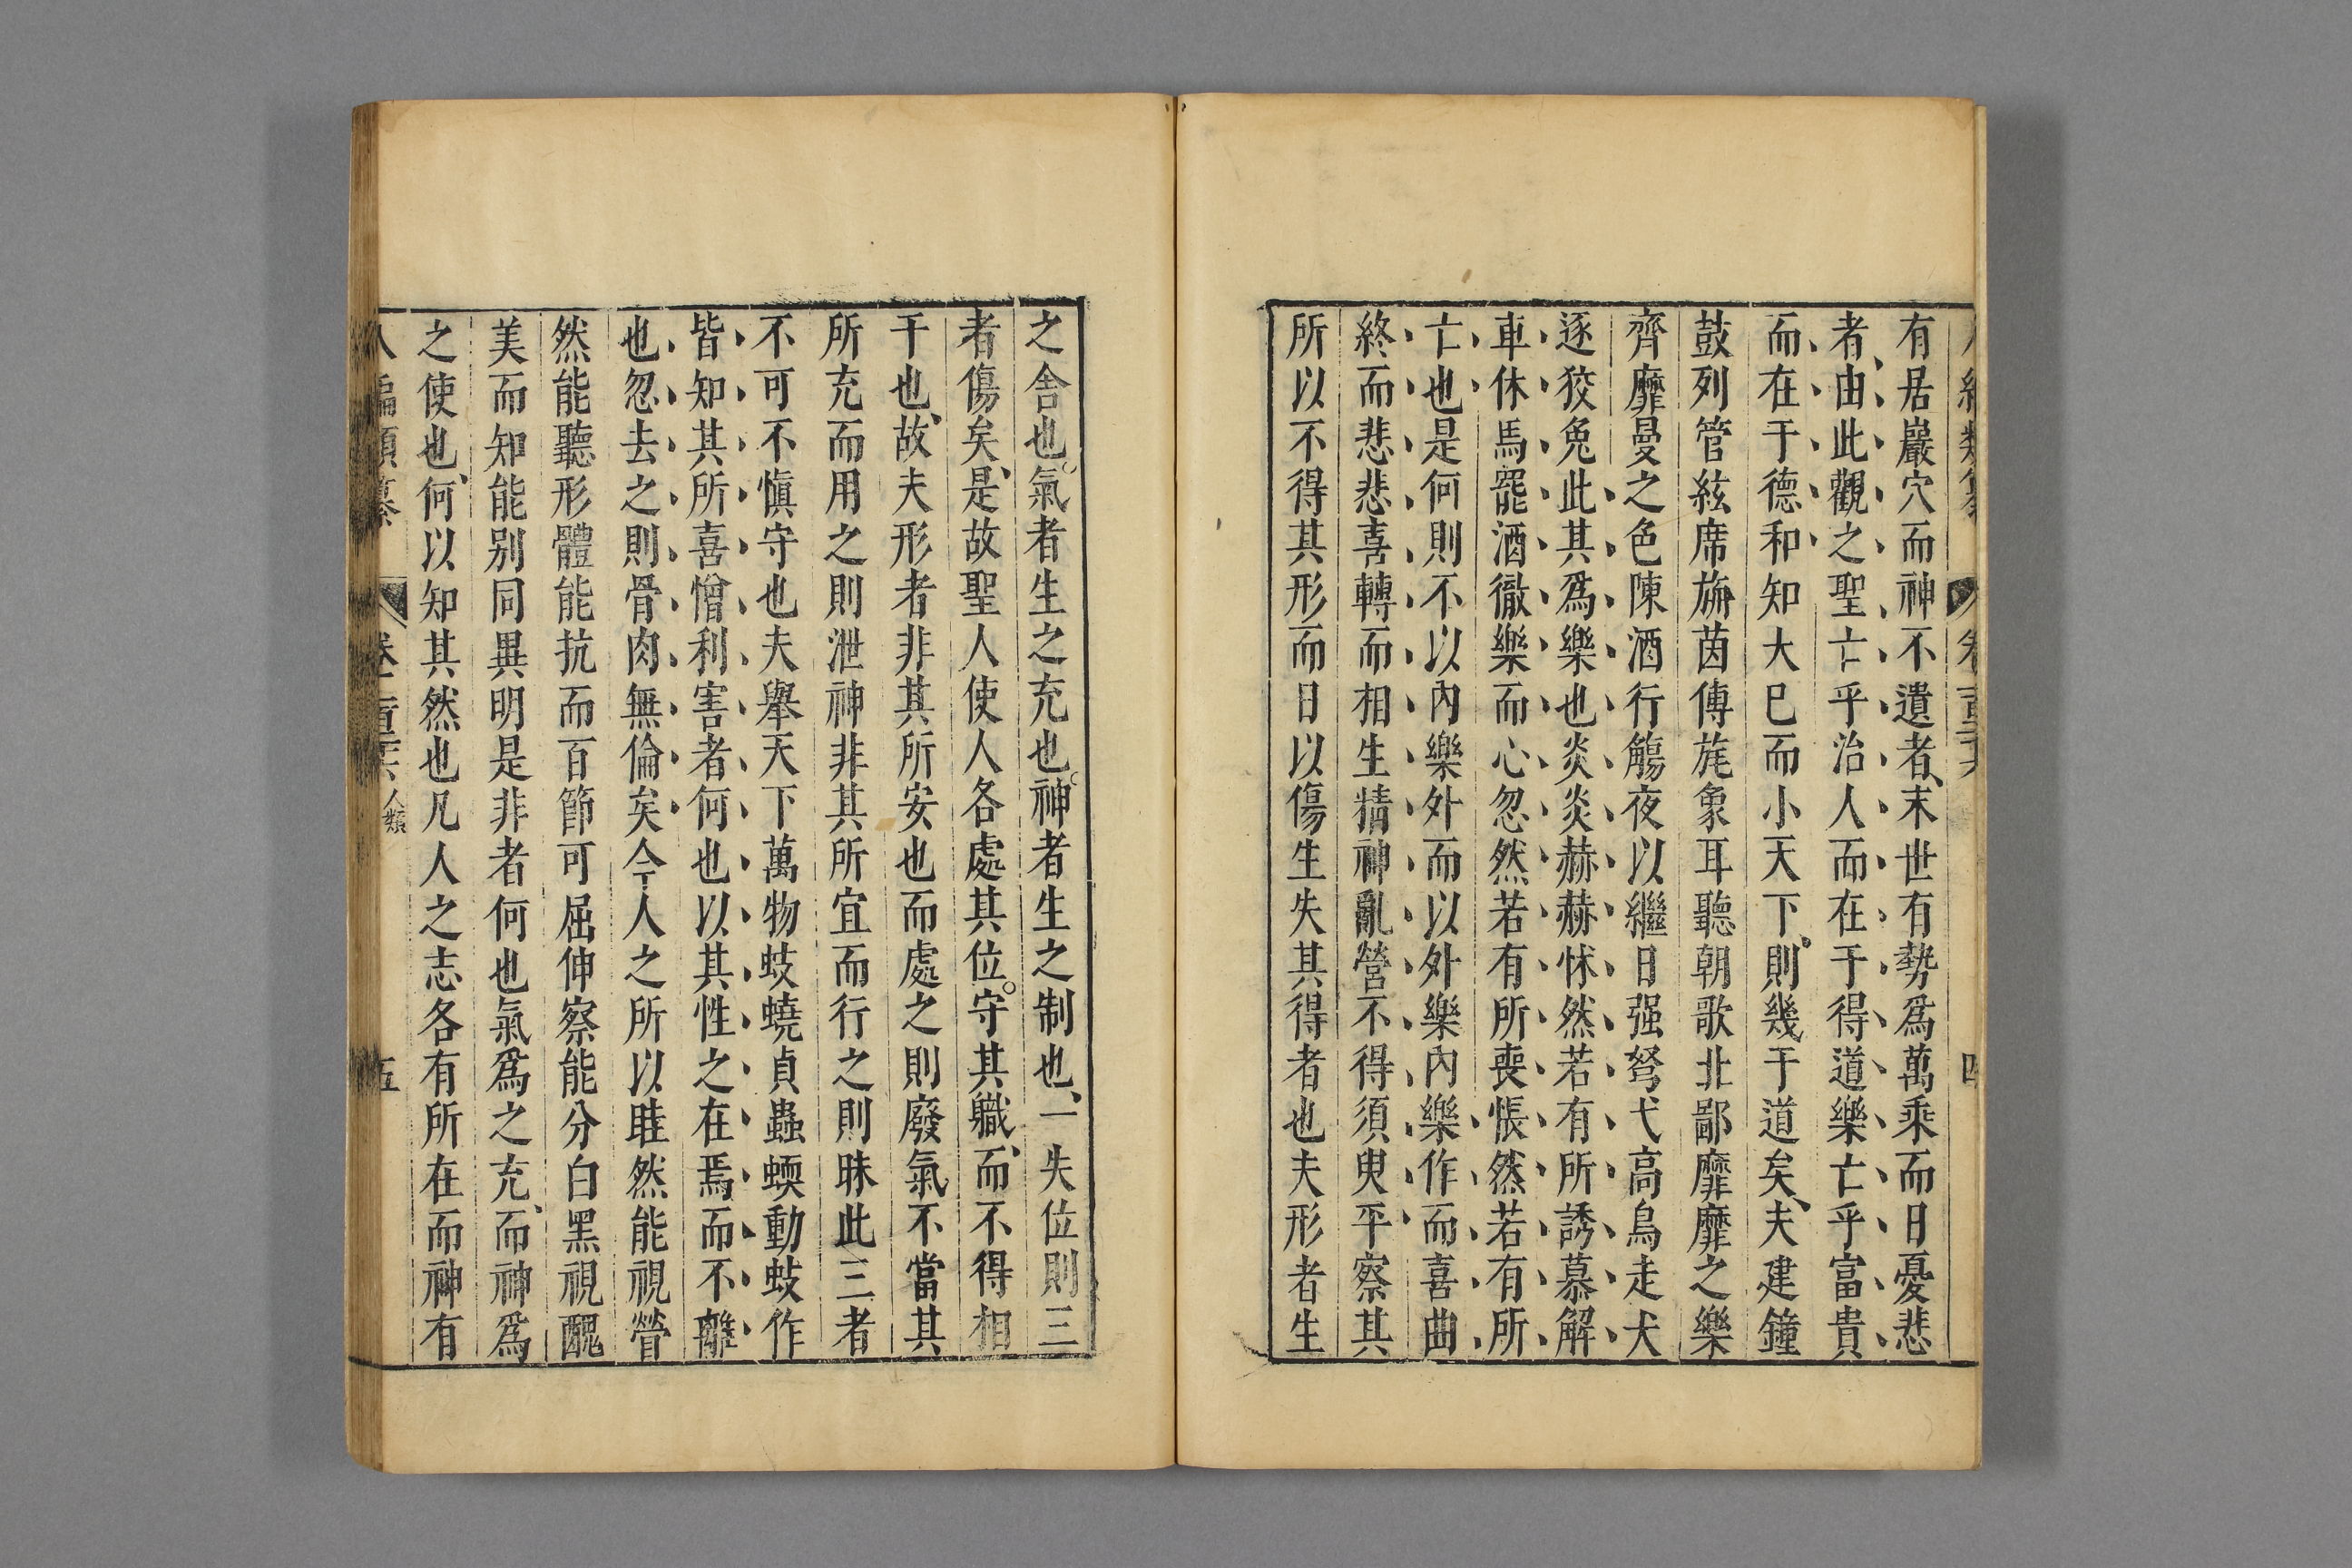 有居巖穴而神不遺者末世有勢爲萬乘而日憂悲
者由此觀之聖亡乎治人而在于得道樂亡乎富貴
而在于德和知大巳而小天下則幾于道矣夫建鐘
鼓列管絃席旃茵傅旄象耳聽朝歌北鄙靡靡之樂
齊靡曼之色陳酒行觴夜以繼日强弩弋高鳥走犬
逐狡兔此其爲樂也炎炎赫赫怵然若有所誘慕解
車休馬罷酒徹樂而心忽然若有所喪悵然若有所
亡也是何則不以內樂外而以外樂內樂作而喜曲
終而悲悲喜轉而相生精神亂營不得須臾平察其
所以不得其形而日以傷生失其得者也夫形者生
之舍也氣者生之充也神者生之制也一失位則三
者傷矣是故聖人使人各處其位守其職而不得相
干也故夫形者非其所安也而處之則廢氣不當其
所充而用之則泄神非其所宜而行之則昧此三者
不可不愼守也夫舉天下萬物蚑蟯貞蟲蝡動蚑作
皆知其所喜憎利害者何也以其性之在焉而不離
也忽去之則骨肉無倫矣今人之所以眭然能視營
然能聽形體能抗而百節可屈伸察能分白黑視醜
美而知能别同異明是非者何也氣爲之充而神爲
之使也何以知其然也凡人之志各有所在而神有
八編類纂 卷一百二十六 人類 五